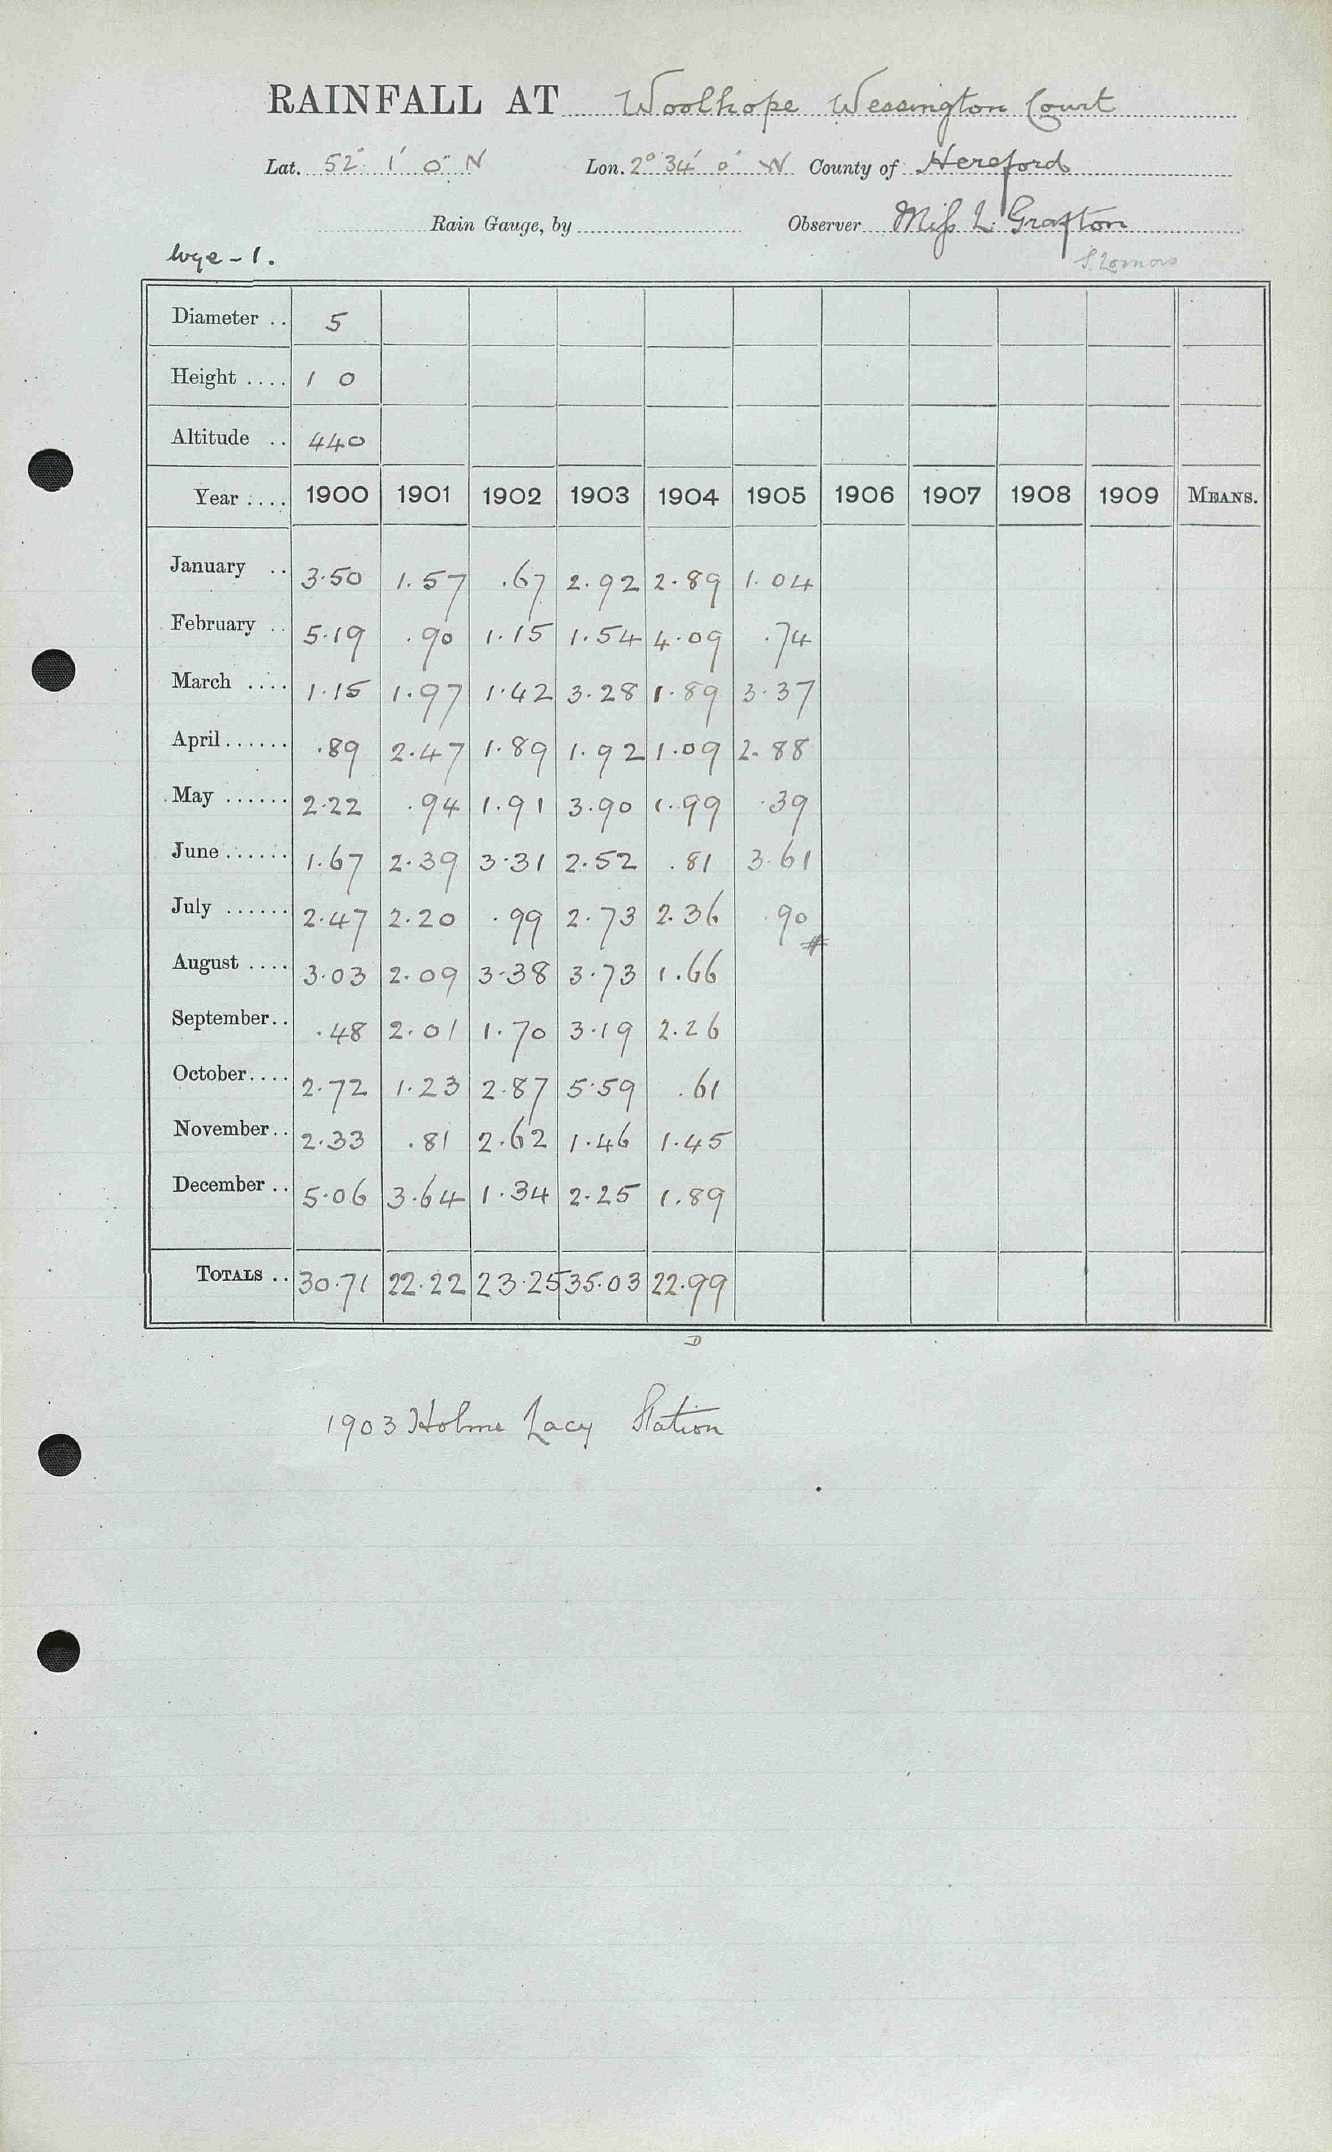 RAINFALL AT Woolhope Wessington Court
Lat. 52° 1' 0" N Lon. 2° 34' 0" W County of Hereford
Rain Gauge, by Observer Miss L. Grafton
Wye - 1.
Diameter .. 5
Height .... 1 0
Altitude .. 440
Year .... 1900 1901 1902 1903 1904 1905 1906 1907 1908 1909 MEANS.
January .. 3.50 1.57 .67 2.92 2.89 1.04
February .. 5.19 .90 1.15 1.54 4.09 .74
March .... 1.15 1.97 1.42 3.28 1.89 3.37
April...... .89 2.47 1.89 1.92 1.09 2.88
May ...... 2.22 .94 1.91 3.90 1.99 .39
June ...... 1.67 2.39 3.31 2.52 .81 3.61
July ...... 2.47 2.20 .99 2.73 2.36 .90
#
August .... 3.03 2.09 3.38 3.73 1.66
September.. .48 2.01 1.70 3.19 2.26
October.... 2.72 1.23 2.87 5.59 .61
November.. 2.33 .81 2.62 1.46 1.45
December .. 5.06 3.64 1.34 2.25 1.89
TOTALS .. 30.71 22.22 23.25 35.03 22.99
D
1903 Holme Lacy Station